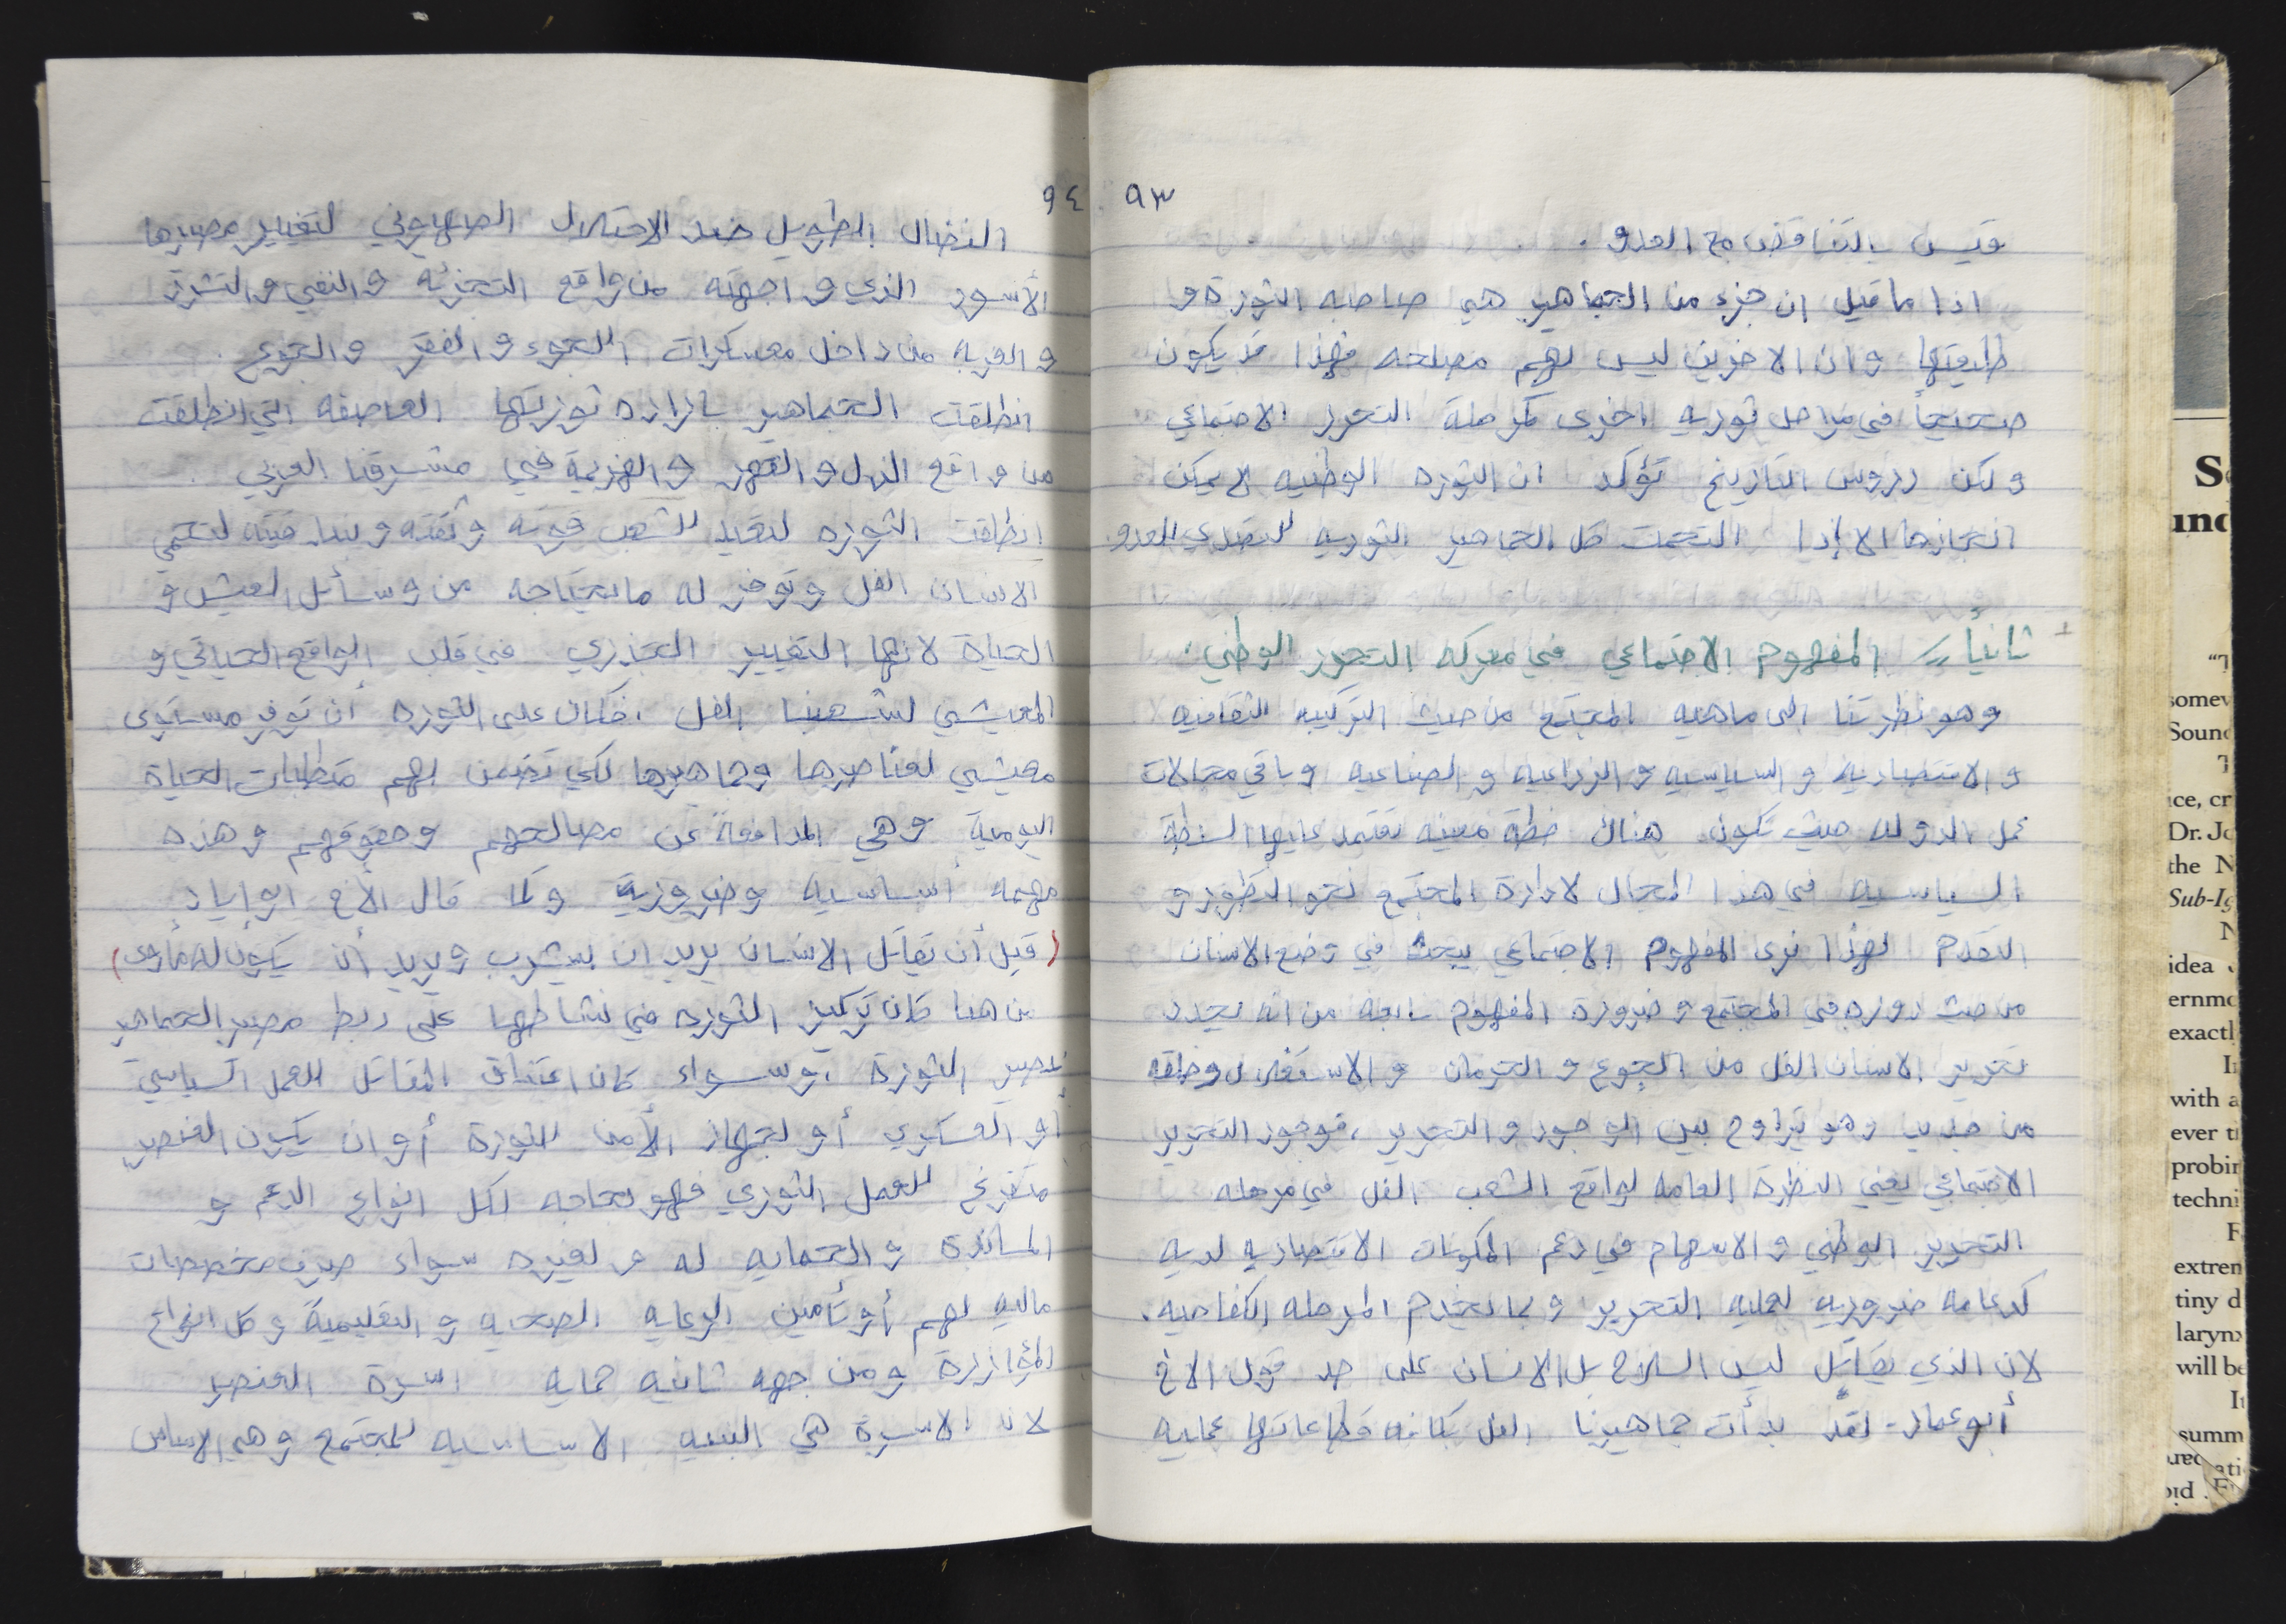 ٩٣
قيس بالتناقض مع العدو .
اذا ما قيل ان جزء من الجماهير هي صاحبه الثورة و
طليعتها وان الاخرين ليس لهم مصلحه فهذا قد يكون
صحيحاً في مراحل ثوريه اخرى كمرحلة التحرر الاجتماعي
ولكن دروس التاريخ تؤكد ان الثوره الوطنيه لا يمكن
انجازها الا إذا التحمت كل الجماهير الثوريه للتصدي للعدو.
ثانياً // المفهوم الاجتماعي في معركه التحرر الوطني .
وهو نظرتنا الى ماهيه المجتمع من حيث التركيبه الثقافيه
و الاقتصاديه و السياسيه و الزراعيه و الصناعيه و باقي مجالات
عمل الدوله حيث تكون هناك خطة معينه تعتمد عليها السلطة
السياسيه في هذا المجال لادارة المجتمع نحو التطور و
التقدم لهذا نرى المفهوم الاجتماعي يبحث في وضع الانسان
من حيث دوره في المجتمع و ضرورة المفهوم نابعه من انه يحدد
تحرير الانسان الفل من الجوع و الحرمان و الاستغلال وخلقه
من جديد وهو يتراوح بين الوجود و التحرير ، فوجود التحرير
الاجتماعي يعني النظرة العامه لواقع الشعب الفل في مرحله
التحرير الوطني و الاسهام في دعم المكونات الاقتصاديه لديه
كدعامه ضروريه لعمليه التحرير و بما يخدم المرحله الكفاحيه .
لان الذي يقاتل ليس السلاح بل الانسان على حد قول الاخ
أبو عمار - لقد بدأت جماهيرنا الفل بكافه قطاعاتها عمليه
٩٤
النضال الطويل ضد الاحتلال الصهيوني لتغيير مصيرها
الأسود الذي واجهته من واقع التجزئه والنفي والتشرد
و الغربه من داخل معسكرات اللجوء و الفقر و الجوع .
انطلقت الجماهير باراده ثوريتها العاصفه التي انطلقت
من واقع الذل و القهر و الهزيمة في مشرقنا العربي .
انطلقت الثوره لتعيد للشعب قوته وثقته وبندقيته لتحمي
الانسان الفل وتوفر له ما يحتاجه من وسائل العيش و
الحياة لانها التغيير الجذري في قلب الواقع الحياتي و
المعيشي لشعبنا الفل ، فكان على الثوره أن توفر مستوى
معيشي لعناصرها وجماهيرها لكي تضمن لهم متطلبات الحياة
اليومية وهي المدافعة عن مصالحهم وحقوقهم وهذه
مهمه أساسيه وضرورية وكما قال الأخ ابو إياد
( قبل أن يقاتل الانسان يريد ان يشرب ويريد أن يكون له مأوى )
من هنا كان تركيز الثوره في نشاطها على ربط مصير الجماهير
بمصير الثورة ، وسواء كان اعتناق المقاتل للعمل السياسي
أو العسكري أو لجهاز الأمن للثورة أو ان يكون العنصر
متفرغ للعمل الثوري فهو بحاجه لكل انواع الدعم و
المساندة و الحمايه له و لغيره سواء صرف مخصصات
ماليه لهم أو تأمين الرعايه الصحيه و التعليمية و كل انواع
المؤازرة و من جهه ثانيه حمايه اسرة العنصر
لان الاسرة هي البنيه الاساسيه للمجتمع وهي الاساس